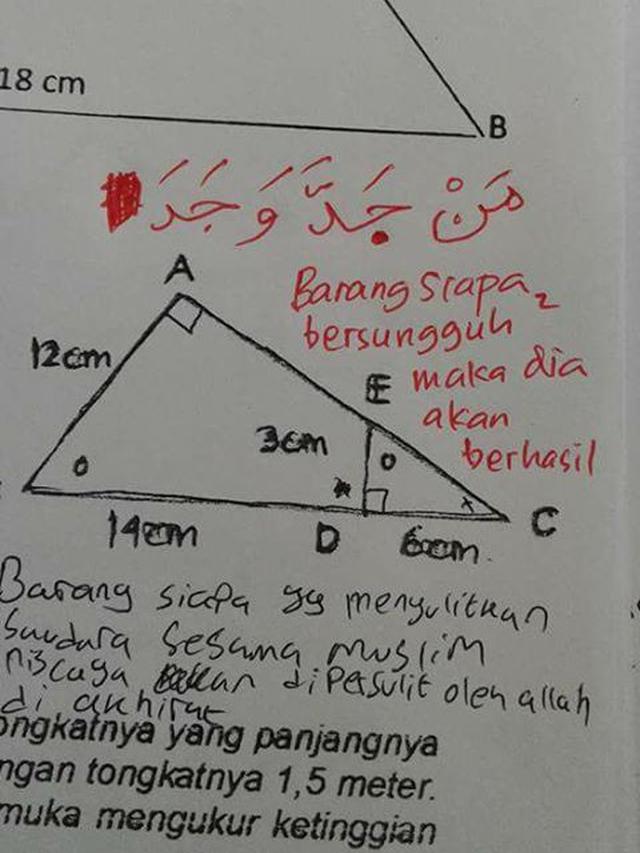 18 cm
B
مَنْ جَدَّ وَجَدَ
A
Barang siapa2
12cm
bersungguh
maka dia
E
akan
3cm
berhasil
o
o
x
C
14cm
D
6cm
Barang siapa yg menyulitkan
Saudara sesama muslim
niscaya akan dipersulit oleh allah
di akhirat
ongkatnya yang panjangnya
ngan tongkatnya 1,5 meter.
muka mengukur ketinggian